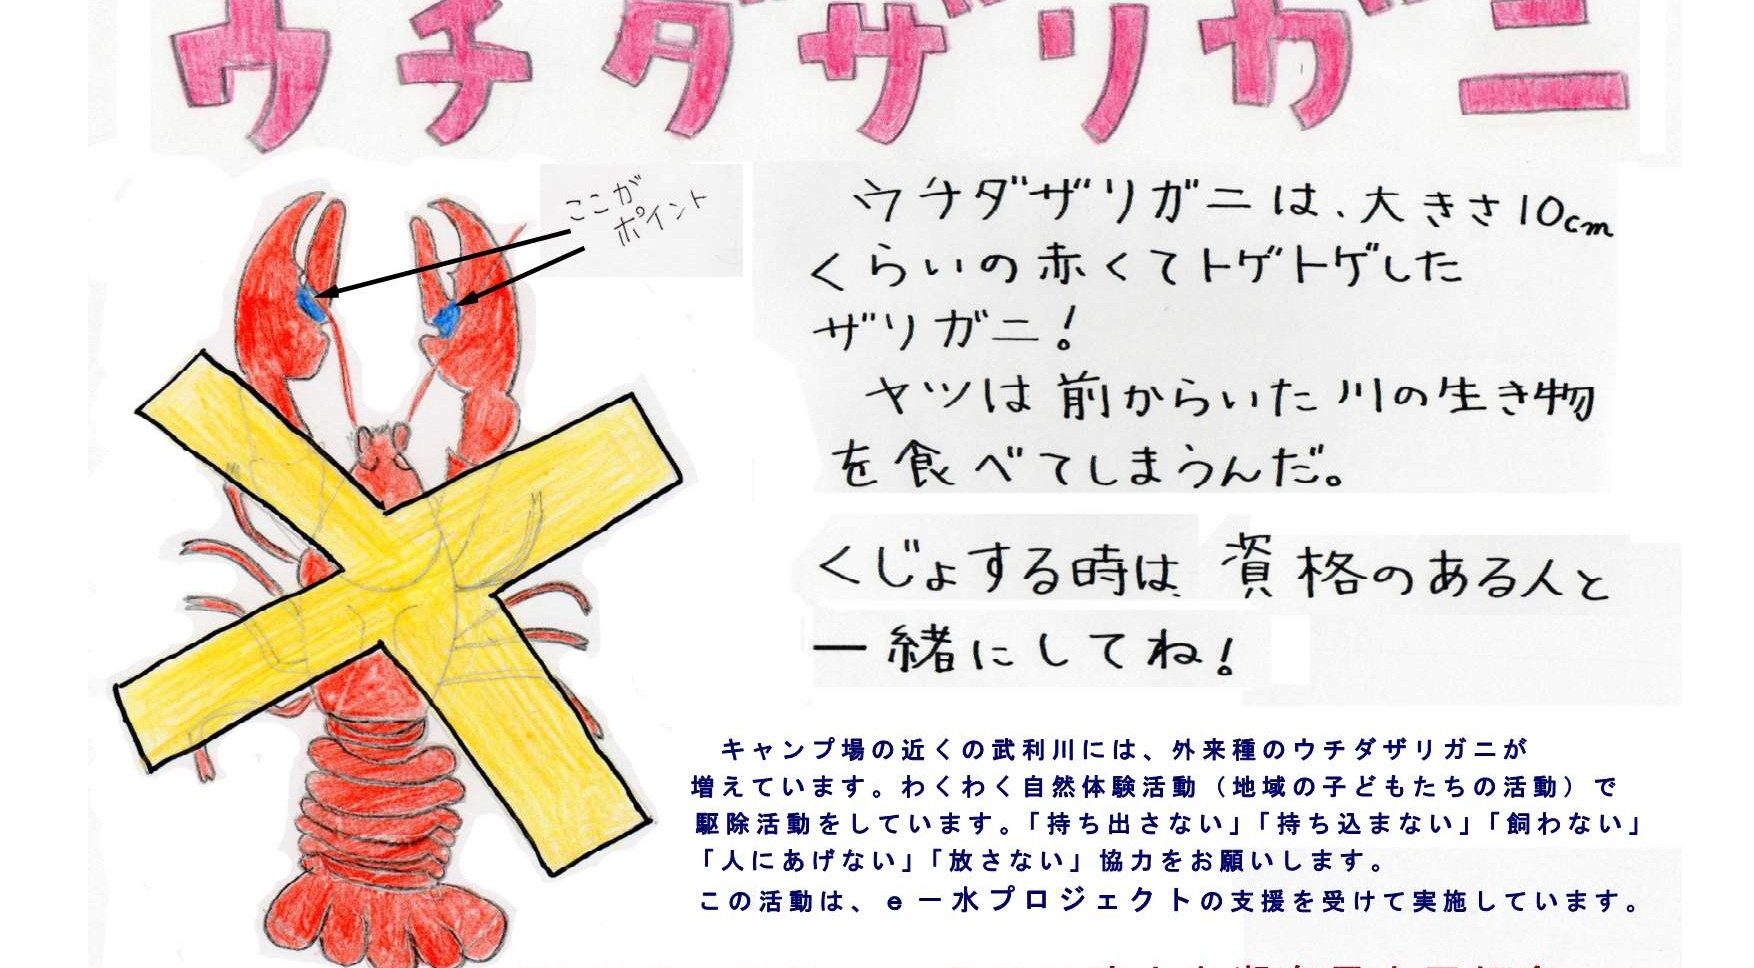 ウチダザリガニ
ここが
ポイント
ウチダザリガニは、大きさ10cm
くらいの赤くてトゲトゲした
ザリガニ!
ヤツは前からいた川の生き物
を食べてしまうんだ。
くじょする時は 資格のある人と
一緒にしてね!
キャンプ場の近くの武利川には、外来種のウチダザリガニが
増えています。わくわく自然体験活動(地域の子どもたちの活動)で
駆除活動をしています。「持ち出さない」「持ち込まない」「飼わない」
「人にあげない」「放さない」協力をお願いします。
この活動は、e-水プロジェクトの支援を受けて実施しています。